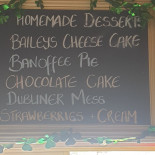 Homemade Desserts
Baileys Cheese Cake
Banoffee Pie
Chocolate Cake
Dubliner Mess
Strawberries + Cream